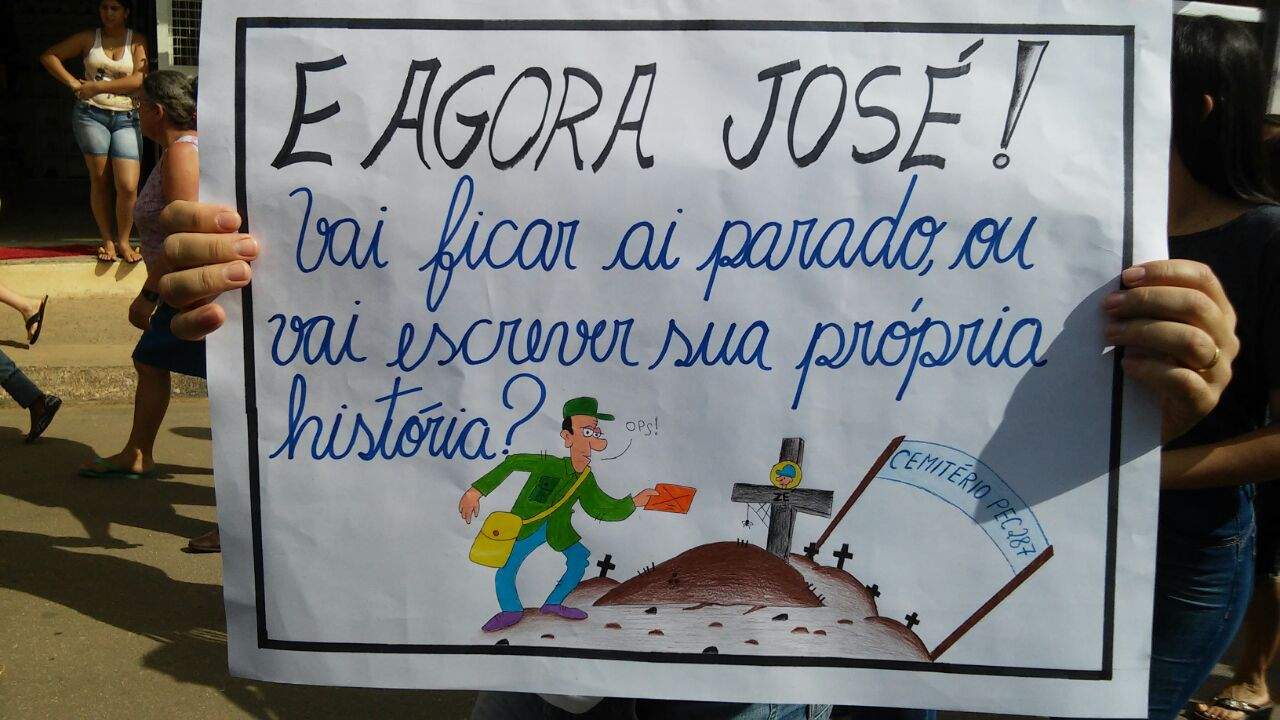 E AGORA JOSÉ!
Vai ficar ai parado, ou
vai escrever sua própria
história?
OPS!
ZÉ
CEMITÉRIO PEC287